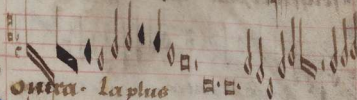 ontra. la plus